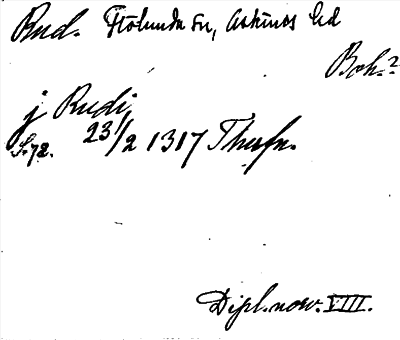 Rud. Frölunda sn, Askims hd
Boh.?
j Rudi
S. 72. 23/2 1317 Thorfn.
Dipl. norv. VIII.